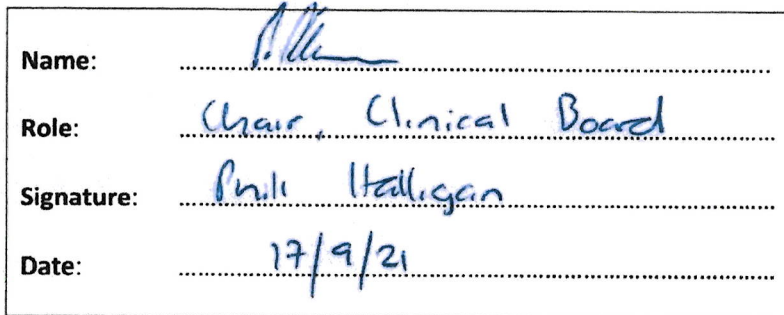 Name:
Role: Chair, Clinical Board
Signature: Halligan
Date: 17/9/21